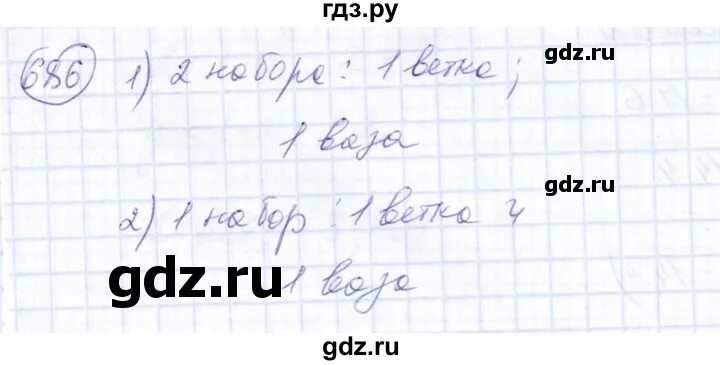 гдз.ру
gdz.ru
686 1) 2 набора: 1 ветка;
1 ваза
gdz.ru
2) 1 набор: 1 ветка и
gdz.ru
1 ваза
gdz.ru